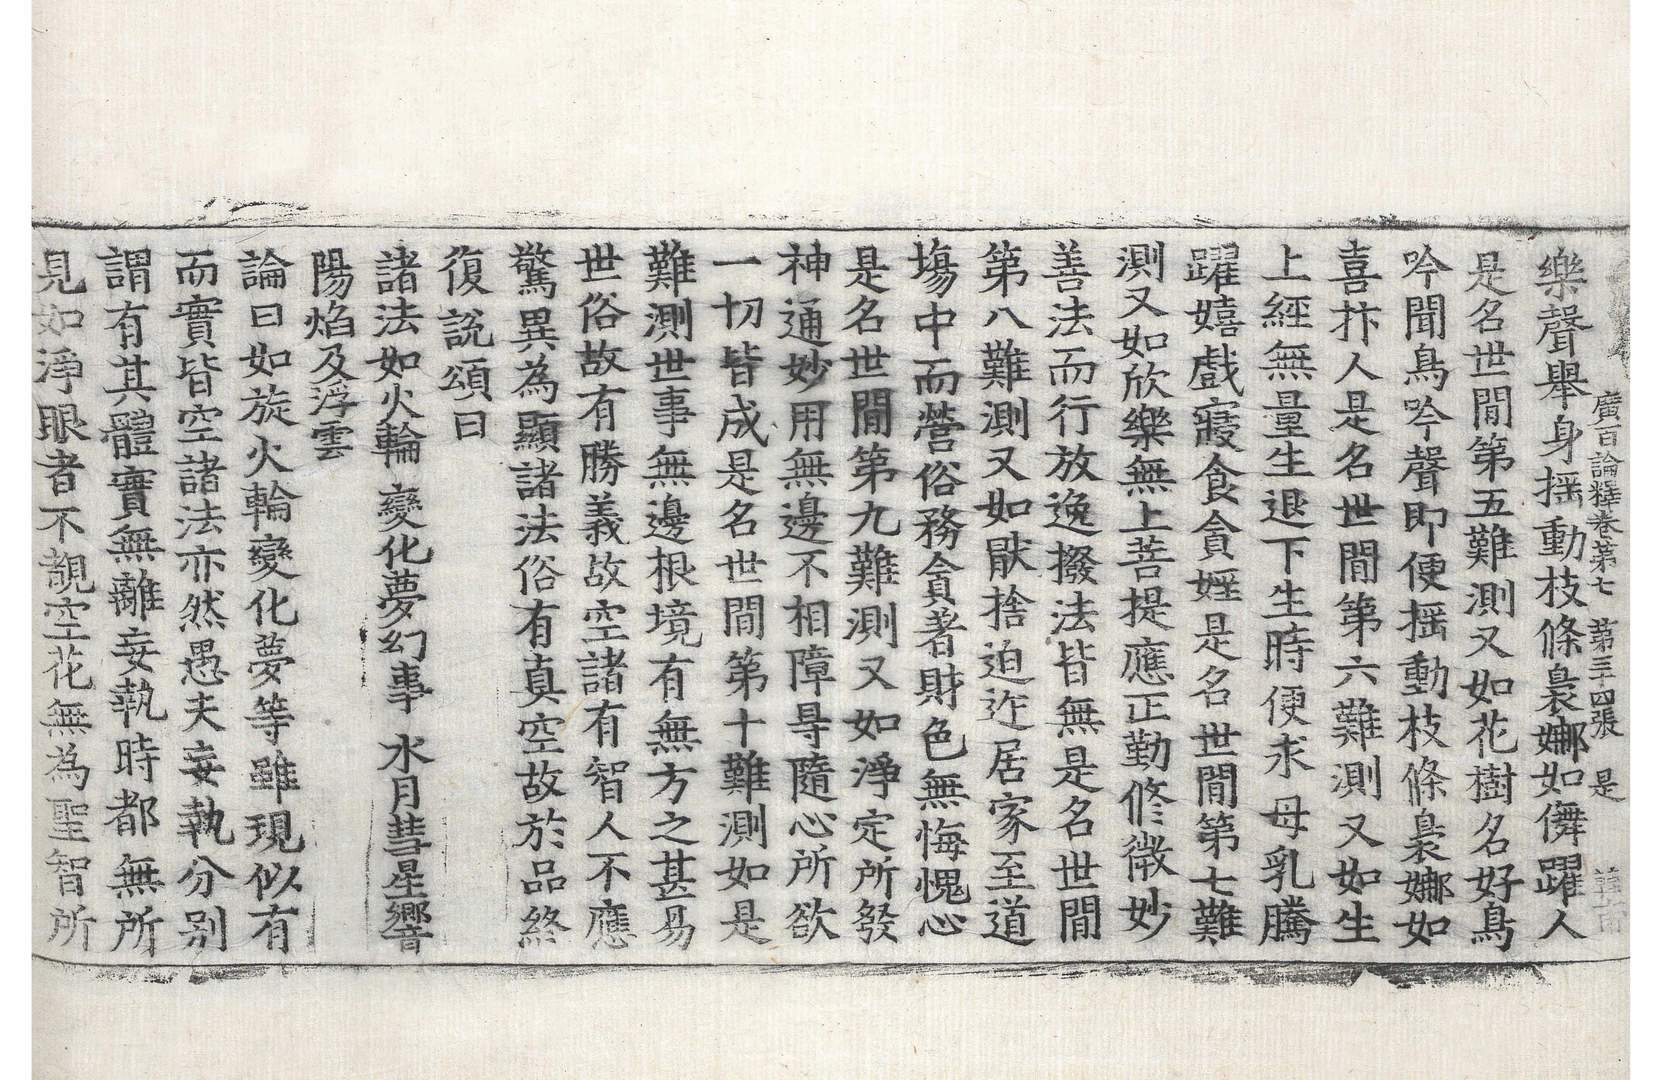 廣百論釋卷第七 第三四張 是
樂聲舉身揺動枝條裊娜如儛躍人
是名世間第五難測又如花樹名好鳥
吟聞鳥吟聲即便揺動枝條裊娜如
喜抃人是名世間第六難測又如生
上經無量生退下生時便求母乳騰
躍嬉戲寢食貪婬是名世間第七難
測又如欣樂無上菩提應正勤修微妙
善法而行放逸撥法皆無是名世間
第八難測又如猒捨迫迮居家至道
場中而營俗務貪著財色無悔愧心
是名世間第九難測又如淨定所發
神通妙用無邊不相障导隨心所欲
一切皆成是名世間第十難測如是
難測世事無邊根境有無方之甚易
世俗故有勝義故空諸有智人不應
驚異為顯諸法俗有真空故於品終
復說頌曰
諸法如火輪 變化夢幻事 水月彗星響
陽焰及浮雲
論曰如旋火輪變化夢等雖現似有
而實皆空諸法亦然愚夫妄執分別
謂有其體實無離妄執時都無所
見如淨眼者不覩空花無為聖智所